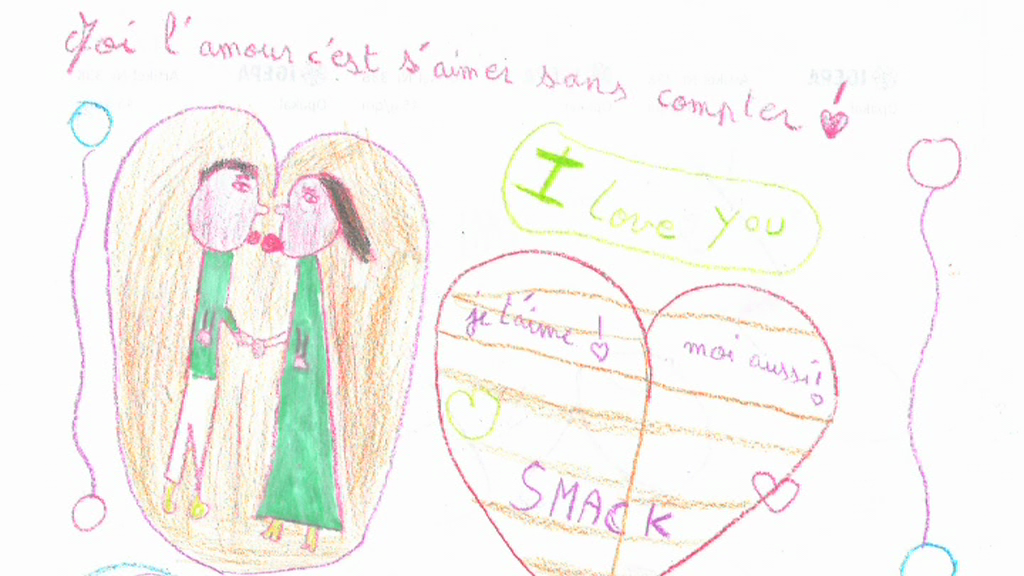 Moi l'amour c'est s'aimer sans compter !
I love you
je t'aime !
moi aussi !
SMACK